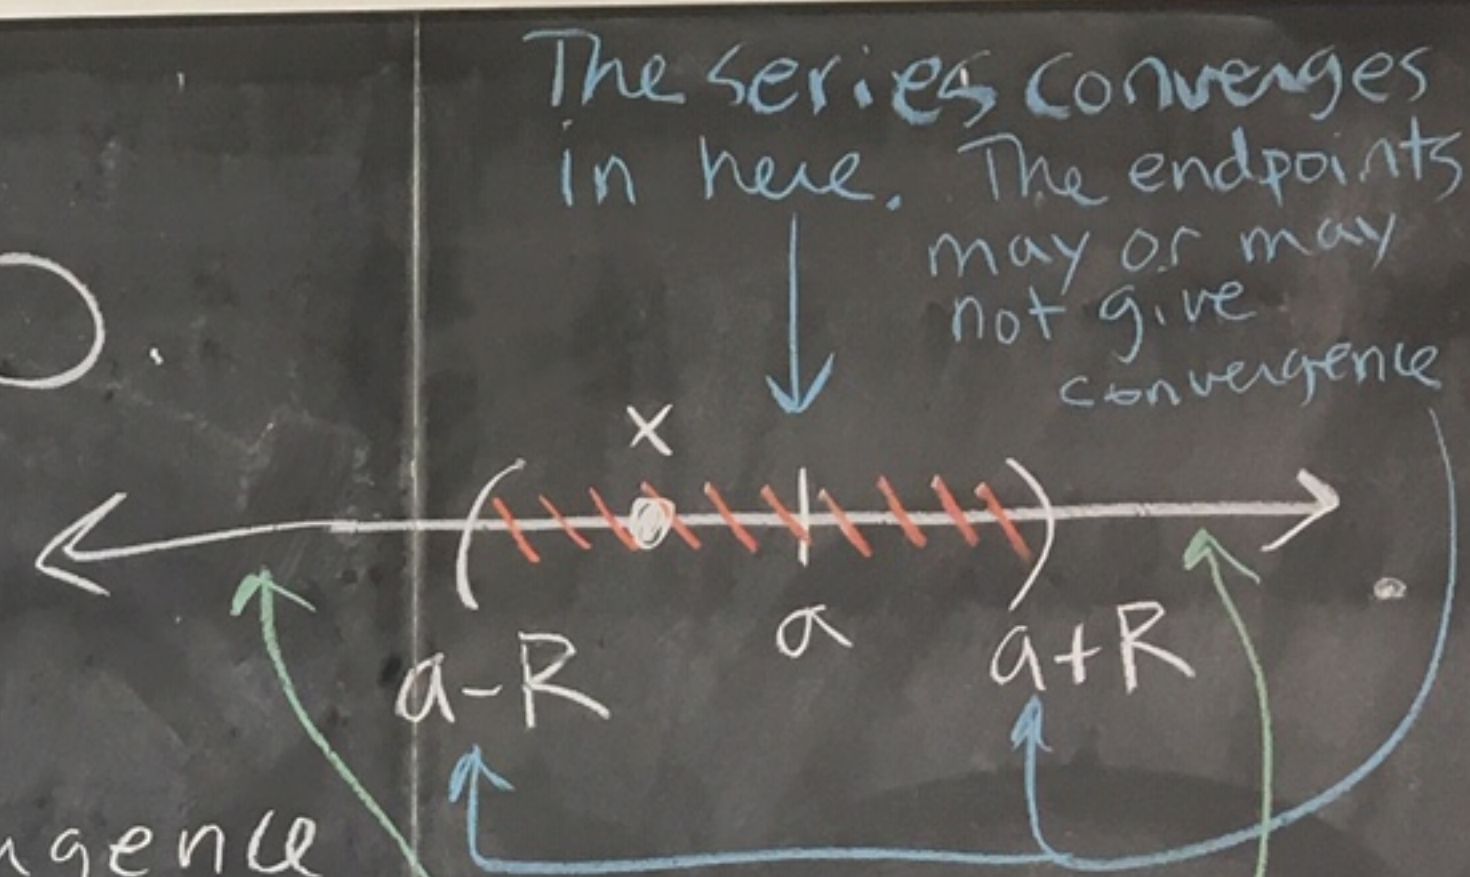 The series converges
in here. The endpoints
may or may
not give
convergence
x
a
a-R
a+R